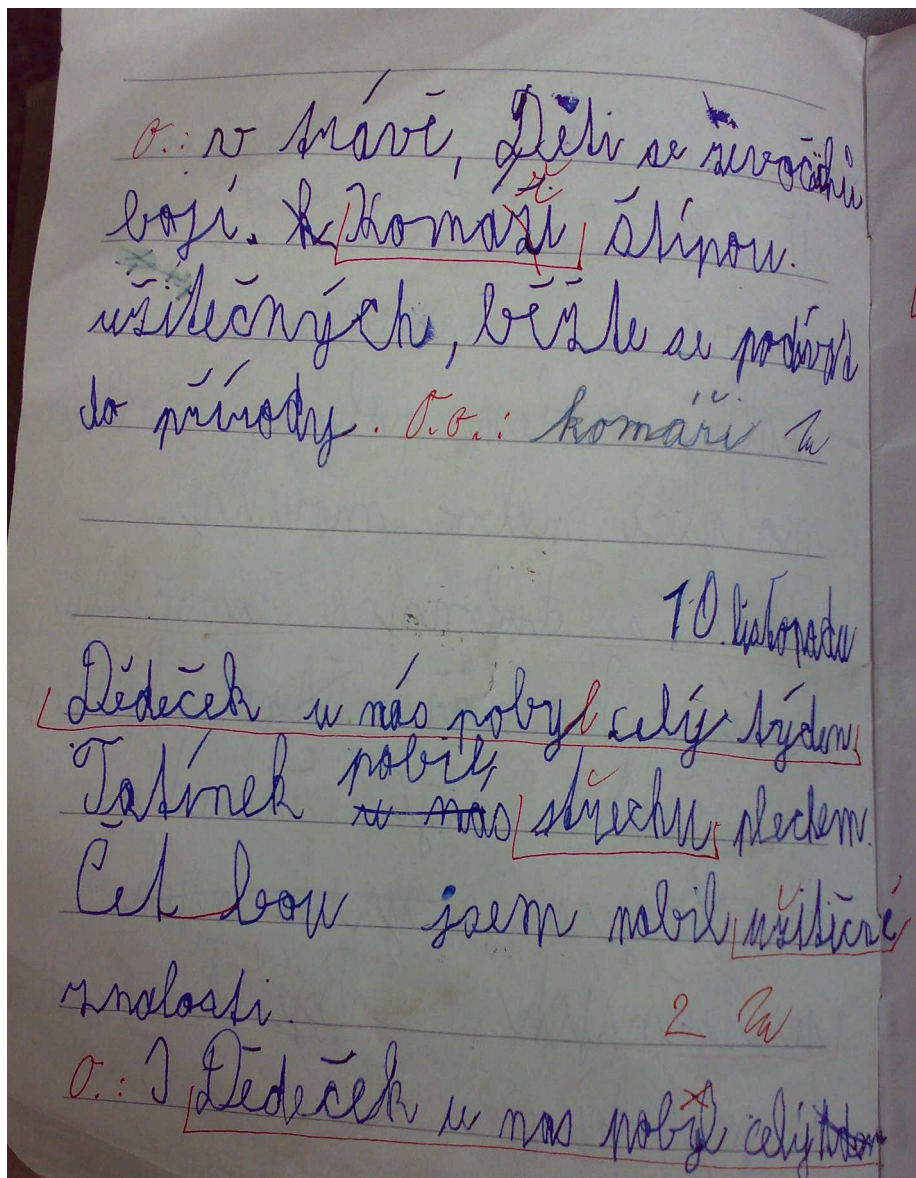 o.: v trávě, Děti se živočichů
bojí. k Komáři štípou.
užitečných, běžte se podívat
do přírody. O.o.: komáři
10. listopadu
Dědeček u nás pobyl celý týden.
Tatínek pobil u nás střechu plechem.
Čet bou jsem nabil užitičné
znalosti. 2
o.: 1 Dědeček u nas pobyl celý